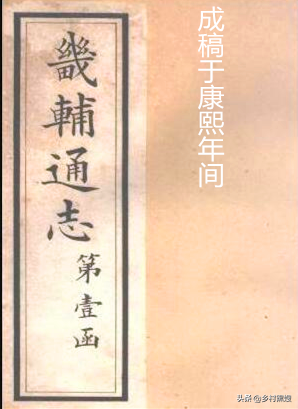 畿輔通志
第壹函
成稿于康熙年间
头条@乡村饶煌